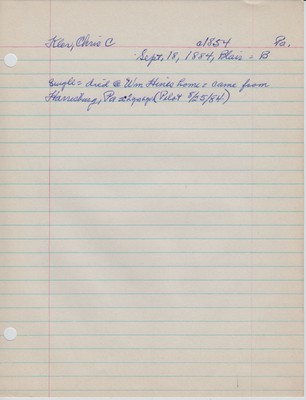 Kley, Chris C c1854 Pa.
Sept, 18, 1884, Blair - B
Single - died @ Wm Hines home - came from
Harrisburg, Pa (Pilot 9/25/84)